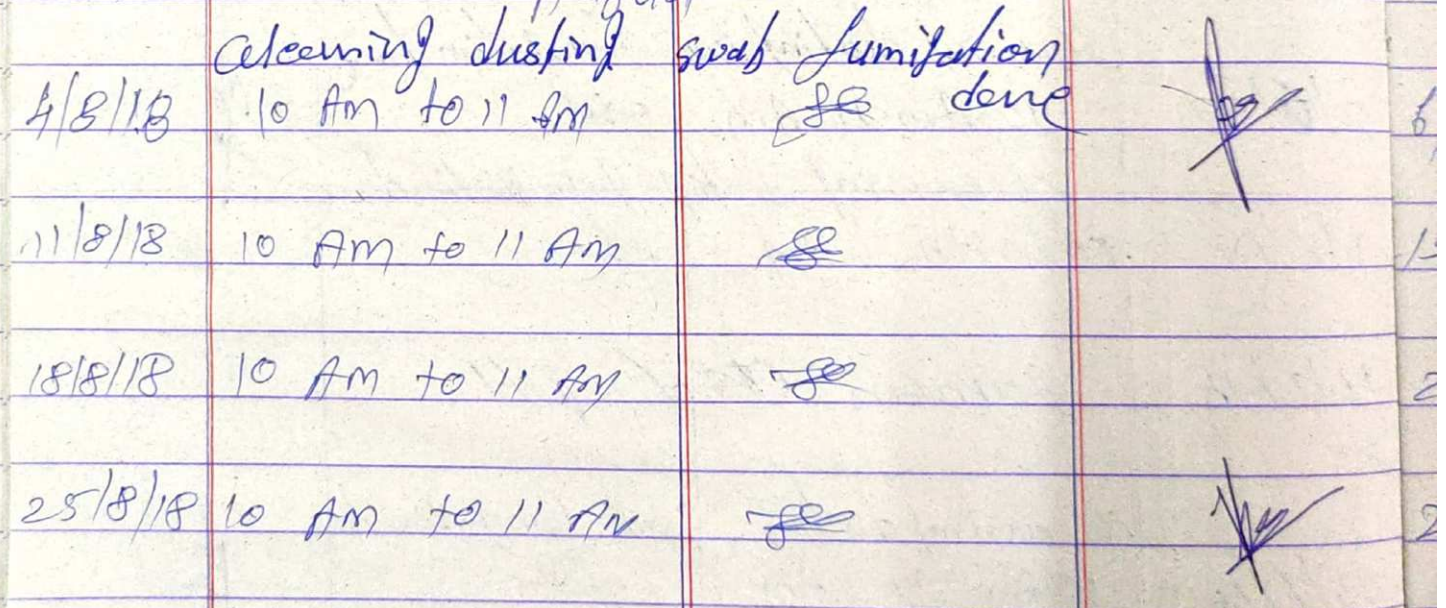 Cleaning dusting swab fumifation
4/8/18 10 Am to 11 Am done
11/8/18 10 Am to 11 Am
18/8/18 10 Am to 11 Am
25/8/18 10 Am to 11 AM